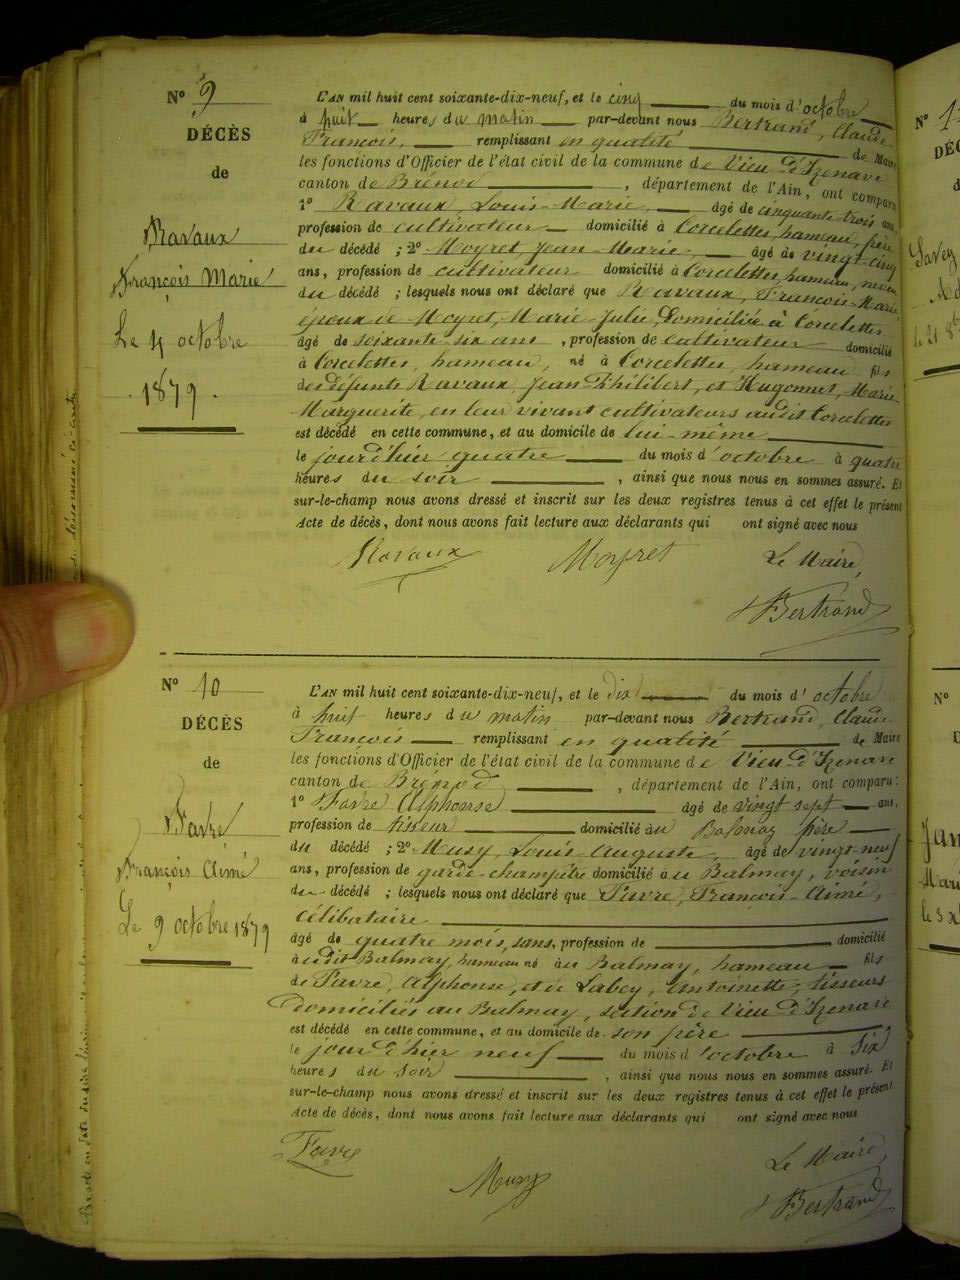 N° 9
DÉCÈS
de
Ravaux
François Marie
Le 4 octobre
1879.
L'AN mil huit cent soixante-dix-neuf, et le cinq du mois d'octobre
à huit heures du matin par-devant nous Bertrand, Claude
François, remplissant en qualité de Maire
les fonctions d'Officier de l'état civil de la commune de Vieu-d'Izenave
canton de Brénod, département de l'Ain, ont comparu
1° Ravaux, Louis-Marie, âgé de cinquante-trois ans,
profession de cultivateur domicilié à Corcelettes, hameau, frère
du décédé ; 2° Moyret, Jean-Marie, âgé de vingt-cinq
ans, profession de cultivateur domicilié à Corcelettes, hameau, neveu
du décédé ; lesquels nous ont déclaré que Ravaux, François-Marie,
époux de Moyret, Marie-Julie, Domiciliée à Corcelettes
âgé de soixante-six ans, profession de cultivateur domicilié
à Corcelettes, hameau, né à Corcelettes, hameau fils
des défunts Ravaux, Jean-Philibert, et Hugonnet, Marie
Marguerite, en leur vivant cultivateurs audit Corcelettes
est décédé en cette commune, et au domicile de lui-même
le jourd'hier quatre du mois d'octobre à quatre
heures du soir, ainsi que nous nous en sommes assuré. Et
sur-le-champ nous avons dressé et inscrit sur les deux registres tenus à cet effet le présent
Acte de décès, dont nous avons fait lecture aux déclarants qui ont signé avec nous
Ravaux Moyret Le Maire,
Bertrand
N° 10
DÉCÈS
de
Favre
François Aimé
Le 9 octobre 1879
L'AN mil huit cent soixante-dix-neuf, et le dix du mois d'octobre
à huit heures du matin par-devant nous Bertrand, Claude
François remplissant en qualité de Maire
les fonctions d'Officier de l'état civil de la commune de Vieu-d'Izenave
canton de Brénod, département de l'Ain, ont comparu :
1° Favre Alphonse âgé de vingt sept ans,
profession de tisseur domicilié au Balmay père
du décédé ; 2° Musy, Louis Auguste, âgé de vingt-neuf
ans, profession de garde-champêtre domicilié au Balmay, voisin
du décédé ; lesquels nous ont déclaré que Favre, François-Aimé,
célibataire
âgé de quatre mois, sans, profession de domicilié
audit Balmay, hameau né au Balmay, hameau fils
de Favre, Alphonse, et de Labey, Antoinette, tisseurs
domiciliés au Balmay, section de Vieu d'Izenave
est décédé en cette commune, et au domicile de son père
le jour d'hier neuf du mois d'octobre à six
heures du soir, ainsi que nous nous en sommes assuré. Et
sur-le-champ nous avons dressé et inscrit sur les deux registres tenus à cet effet le présent
Acte de décès, dont nous avons fait lecture aux déclarants qui ont signé avec nous
Favre Musy Le Maire,
Bertrand
N°
DÉC
Savey
N°
Marie